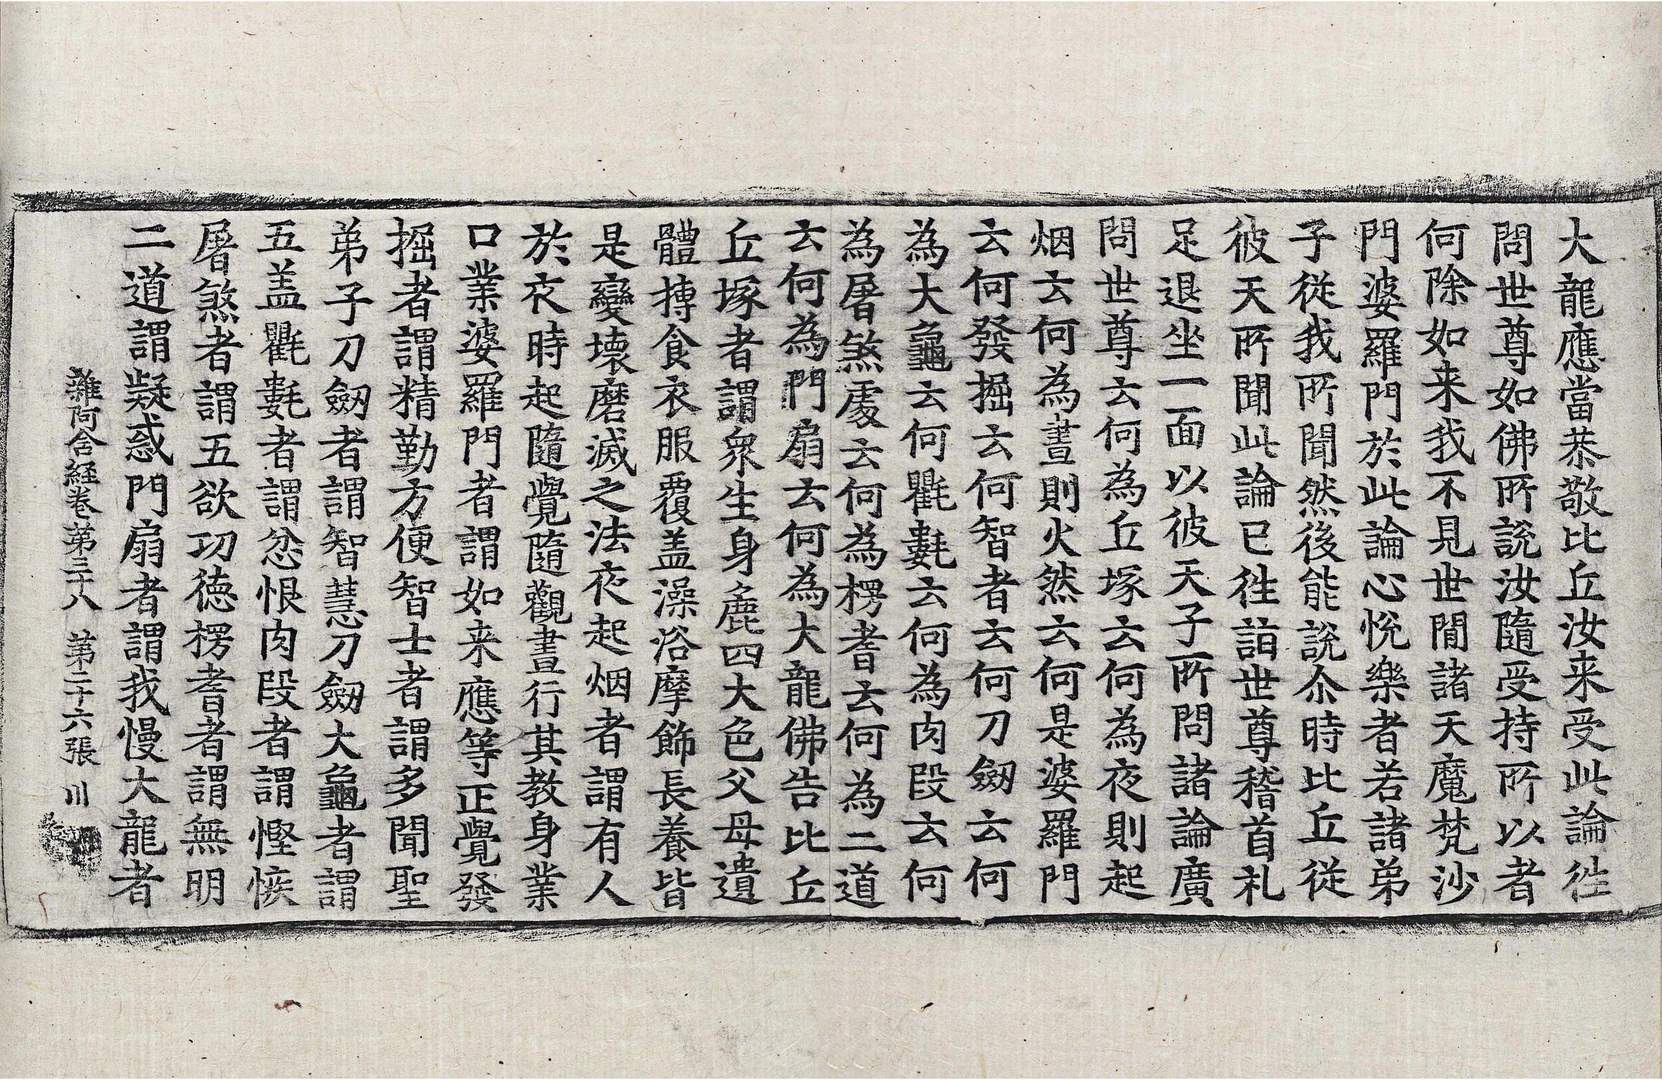 大龍應當恭敬比丘汝来受此論徃
問世尊如佛所說汝隨受持所以者
何除如来我不見世間諸天魔梵沙
門婆羅門於此論心悅樂者若諸弟
子從我所聞然後能說尒時比丘從
彼天所聞此論已徃詣世尊稽首礼
足退坐一面以彼天子所問諸論廣
問世尊云何為丘塚云何為夜則起
烟云何為晝則火然云何是婆羅門
云何發掘云何智者云何刀劒云何
為大龜云何氍𣯫云何為肉段云何
為屠煞處云何為楞耆云何為二道
云何為門扇云何為大龍佛告比丘
丘塚者謂衆生身麁四大色父母遺
體摶食衣服覆盖澡浴摩飾長養皆
是變壞磨滅之法夜起烟者謂有人
於夜時起隨覺隨觀晝行其教身業
口業婆羅門者謂如来應等正覺發
掘者謂精勤方便智士者謂多聞聖
弟子刀劒者謂智慧刀劒大龜者謂
五盖氍𣯫者謂忿恨肉段者謂慳嫉
屠煞者謂五欲功徳楞耆者謂無明
二道謂疑惑門扇者謂我慢大龍者
雜阿含経卷第三十八 第二十六張 川